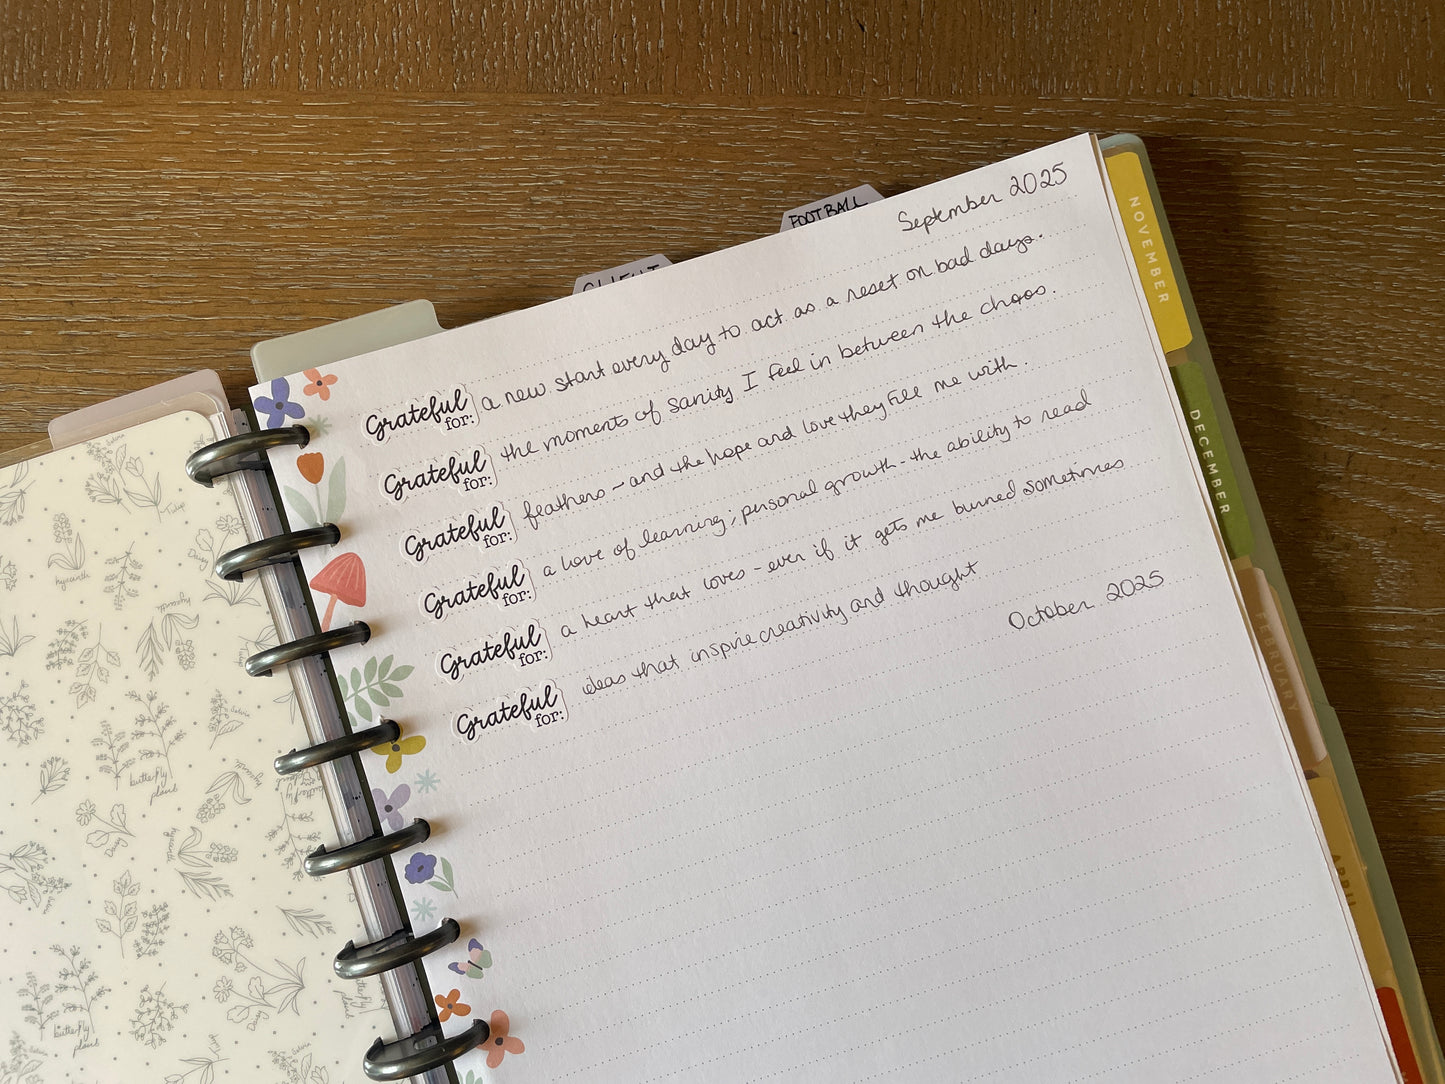 FOOTBALL
September 2025
Grateful for: a new start every day to act as a reset on bad days.
Grateful for: the moments of sanity I feel in between the chaos.
Grateful for: feathers - and the hope and love they fill me with.
Grateful for: a love of learning, personal growth - the ability to read
Grateful for: a heart that loves - even if it gets me burned sometimes
Grateful for: ideas that inspire creativity and thought
October 2025
NOVEMBER
DECEMBER
FEBRUARY
APRIL
Tulip
hyacinth
Daisy
hyacinth
Salvia
butterfly
plant
hyacinth
Daisy
butterfly
plant
Salvia